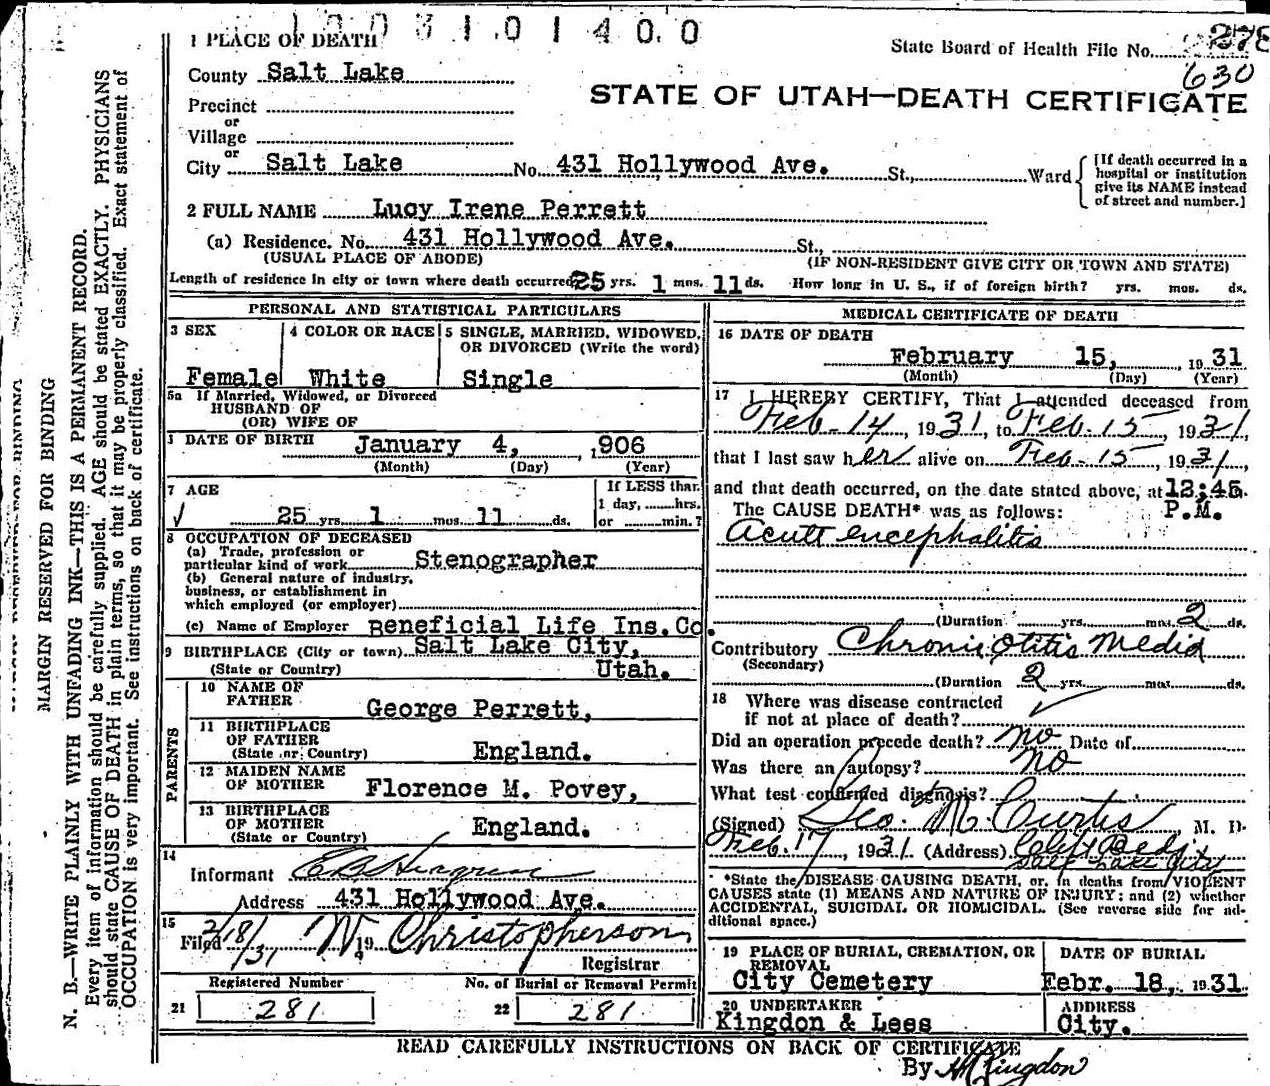 1003101400
State Board of Health File No. 278
630
1 PLACE OF DEATH
County Salt Lake
STATE OF UTAH—DEATH CERTIFICATE
Precinct
or
Village
or
City Salt Lake No. 431 Hollywood Ave. St., Ward
[If death occurred in a
hospital or institution
give its NAME instead
of street and number.]
2 FULL NAME Lucy Irene Perrett
(a) Residence. No. 431 Hollywood Ave. St.,
(USUAL PLACE OF ABODE) (IF NON-RESIDENT GIVE CITY OR TOWN AND STATE)
Length of residence in city or town where death occurred 25 yrs. 1 mos. 11 ds. How long in U. S., if of foreign birth? yrs. mos. ds.
PERSONAL AND STATISTICAL PARTICULARS
3 SEX
Female
4 COLOR OR RACE
White
5 SINGLE, MARRIED, WIDOWED,
OR DIVORCED (Write the word)
Single
5a If Married, Widowed, or Divorced
HUSBAND OF
(OR) WIFE OF
DATE OF BIRTH January 4, 1906
(Month) (Day) (Year)
7 AGE
25 yrs. 1 mos. 11 ds.
If LESS than
1 day, hrs.
or min.?
8 OCCUPATION OF DECEASED
(a) Trade, profession or
particular kind of work Stenographer
(b) General nature of industry,
business, or establishment in
which employed (or employer)
(c) Name of Employer Beneficial Life Ins. Co.
9 BIRTHPLACE (City or town) Salt Lake City,
(State or Country) Utah.
PARENTS
10 NAME OF
FATHER
George Perrett,
11 BIRTHPLACE
OF FATHER
(State or Country) England.
12 MAIDEN NAME
OF MOTHER Florence M. Povey,
13 BIRTHPLACE
OF MOTHER
(State or Country) England.
14
Informant
Address 431 Hollywood Ave.
15
Filed 2/18/31 19 W. Christopherson
Registrar
Registered Number
21 281
No. of Burial or Removal Permit
22 281
MEDICAL CERTIFICATE OF DEATH
16 DATE OF DEATH
February 15, 1931
(Month) (Day) (Year)
17 I HEREBY CERTIFY, That I attended deceased from
Feb. 14, 1931, to Feb. 15, 1931,
that I last saw her alive on Feb. 15, 1931,
and that death occurred, on the date stated above, at 12:45
The CAUSE DEATH* was as follows: P.M.
Acute encephalitis
(Duration yrs. mos. 2 ds.
Contributory Chronic Otitis Media
(Secondary)
(Duration 2 yrs. mos. ds.
18 Where was disease contracted
if not at place of death?
Did an operation precede death? no Date of
Was there an autopsy? no
What test confirmed diagnosis?
(Signed) Geo. N. Curtis, M. D.
Feb. 17, 1931. (Address) Clift Bldg
Salt Lake City
*State the DISEASE CAUSING DEATH, or, in deaths from VIOLENT
CAUSES state (1) MEANS AND NATURE OF INJURY; and (2) whether
ACCIDENTAL, SUICIDAL OR HOMICIDAL. (See reverse side for ad-
ditional space.)
19 PLACE OF BURIAL, CREMATION, OR
REMOVAL
City Cemetery
DATE OF BURIAL
Febr. 18, 1931.
20 UNDERTAKER
Kingdon & Lees
ADDRESS
City.
READ CAREFULLY INSTRUCTIONS ON BACK OF CERTIFICATE
By Kingdon
MARGIN RESERVED FOR BINDING
N. B.—WRITE PLAINLY WITH UNFADING INK—THIS IS A PERMANENT RECORD.
Every item of information should be carefully supplied. AGE should be stated EXACTLY. PHYSICIANS
should state CAUSE OF DEATH in plain terms, so that it may be properly classified. Exact statement of
OCCUPATION is very important. See instructions on back of certificate.